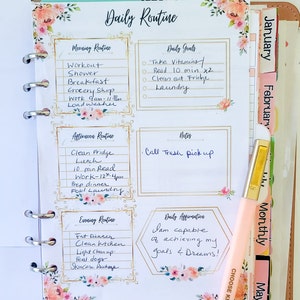 Daily Routine
Morning Routine
Workout
Shower
Breakfast
Grocery Shop
Work 9am-11:30
Load washer
Daily Goals
Take Vitamins/
Read 10 min x2
Clean out Fridge
Laundry
Afternoon Routine
Clean Fridge
Lunch
10 min Read
Work-12-4pm
Prep dinner
Fold Laundry
Notes
Call Trash pickup
Evening Routine
Eat Dinner
Clean Kitchen
Light clean up
Daily Affirmation
I am capable
of achieving my
goals & Dreams!
January
February
Monthly
CHOOSE